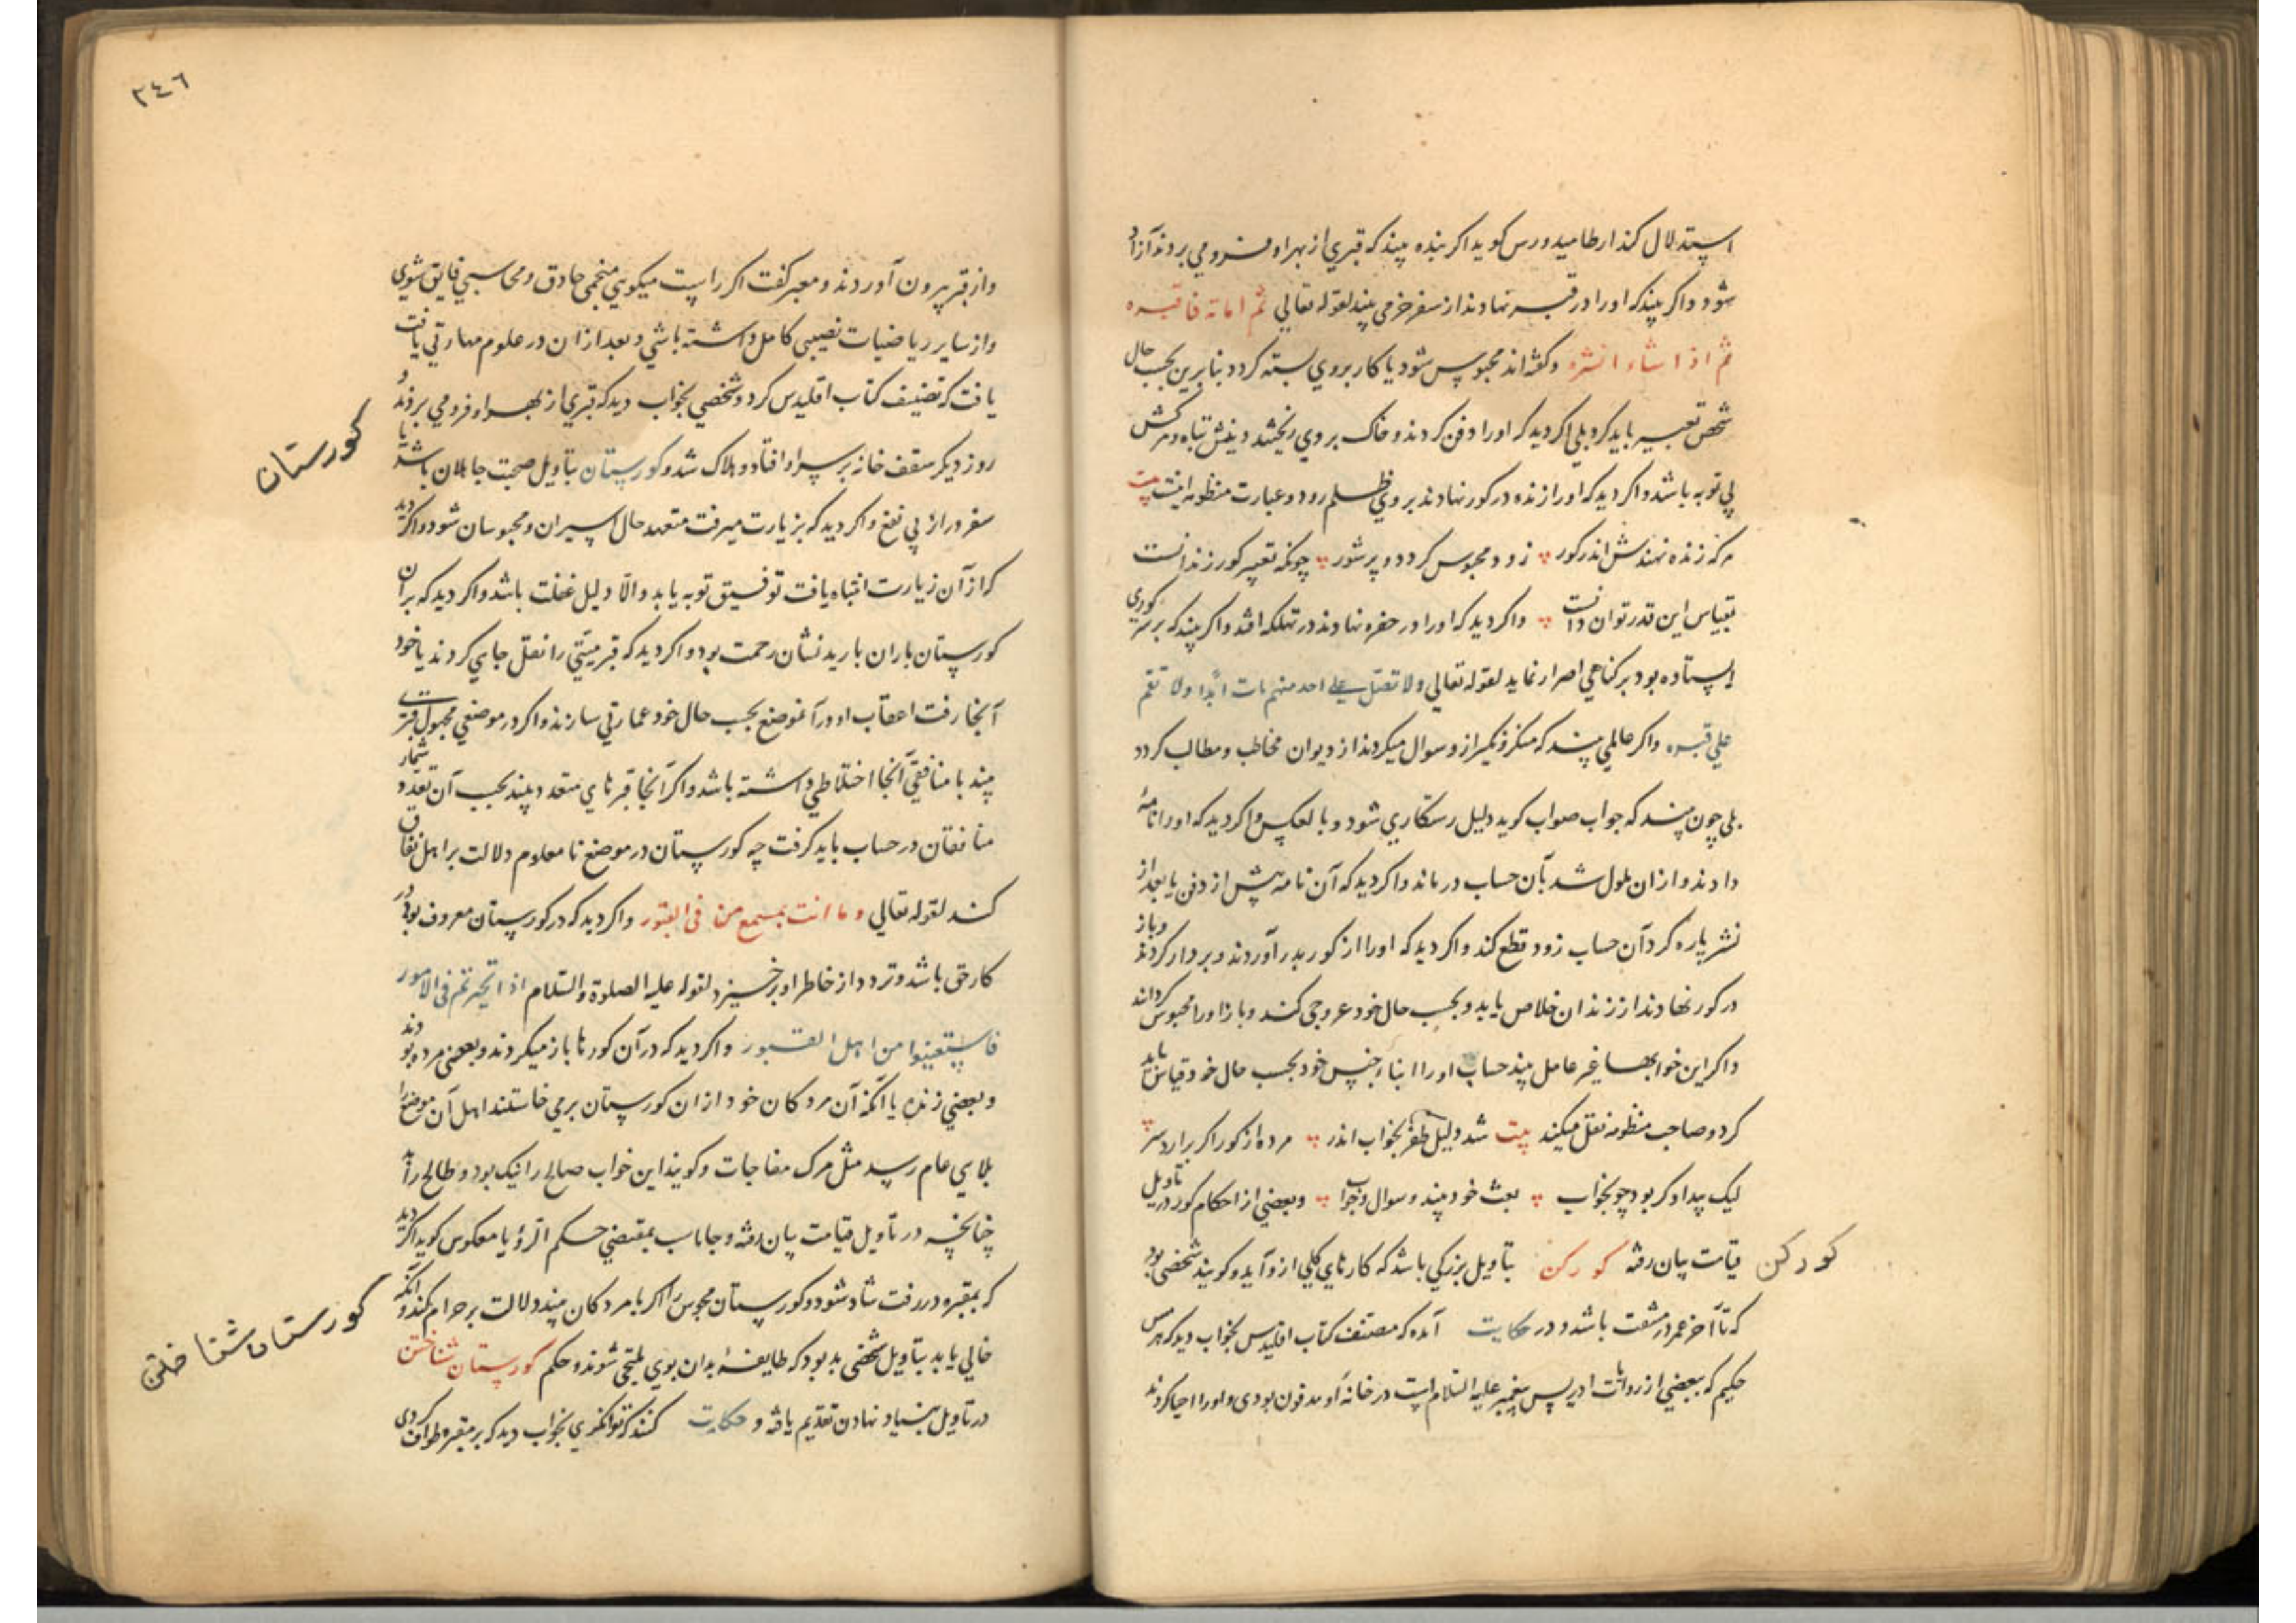 استدلال کند ارطامیدورس کوید اکر بنده بیند که قبری از بهر او فرو می بردند آزاد
شود و اکر بیند که او را در قبر نهادند از سفر خرمی بیند لقوله تعالی ثم اماته فاقبره
ثم اذا شاء انشره و کفته اند محبوس شود یا کار بر وی بسته کردد بنابرین بحسب حال
شخص تعبیر باید کرد بلی اکر دید که او را دفن کردند و خاک بر وی ریختند دینش تباه و مرکش
بی توبه باشد و اکر دید که او را زنده در کور نهادند بر وی ظلم رود و عبارت منظومه اینست بیت
هر که زنده نهندش اندر کور زود محبوس کردد و پر شور چونکه تعبیر کور زندانست
بقیاس این قدر توان دانست و اکر دید که او را در حفره نهادند در تهلکه افتد و اکر بیند که بر سر کوری
ایستاده بود بر کناهی اصرار نماید لقوله تعالی ولا تصل علی احد منهم مات ابدا ولا تقم
علی قبره و اکر عالمی بیند که منکر و نکیر ازو سوال میکردند از دیوان مخاطب و مطالب کردد
بلی چون بیند که جواب صواب کوید دلیل رستکاری شود و بالعکس و اکر دید که او را نامهٔ
دادند و از ان ملول شد بآن حساب درماند و اکر دید که آن نامه پیش از دفن یا بعد از
نشر پاره کرد آن حساب زود قطع کند و اکر دید که او را از کور بدر آوردند و بر دار کردند و باز
در کور نهادند از زندان خلاص یابد و بحسب حال خود عروجی کند و باز او را محبوس کردانند
و اکر این خوابها غیر عامل بیند حساب او را ابناء جنس خود بحسب حال خود قیاس باید
کرد و صاحب منظومه نقل میکند بیت شد دلیل ظفر بخواب اندر مرده از کور اکر برارد سر
لیک بیدادکر بود چو بخواب بعث خود بیند و سوال و جواب و بعضی از احکام کور در تاویل
قیامت بیان رفته کورکن بتاویل بزرکی باشد که کارهای کلی ازو آید و کویند شخصی بود
کورکن
که تا آخر عمر در مشقت باشد و در حکایت آمده که مصنف کتاب اقلیدس بخواب دید که هرمس
حکیم که ببعضی از روایات ادریس پیغمبر علیه السلام است در خانهٔ او مدفون بودی و او را احیا کردند
٣٤٦
و از قبر بیرون آوردند و معبر کفت اکر راست میکویی منجمی حاذق و محاسبی فایق شوی
و از سایر ریاضیات نصیبی کامل داشته باشی و بعد از ان در علوم مهارتی یافت
یافت که تصنیف کتاب اقلیدس کرد و شخصی بخواب دید که قبری از بهر او فرو می بردند و
روز دیکر سقف خانه بر سر او افتاد و هلاک شد و کورستان بتاویل صحبت جاهلان باشد یا
کورستان
سفر دراز بی نفع و اکر دید که بزیارت میرفت متعهد حال اسیران و محبوسان شود و اکر دید
که از آن زیارت انتباه یافت توفیق توبه یابد والا دلیل غفلت باشد و اکر دید که بر ان
کورستان باران بارید نشان رحمت بود و اکر دید که قبر میتی را نقل جایی کردند یا خود
آنجا رفت اعقاب او در آنموضع بحسب حال خود عمارتی سازند و اکر در موضعی مجهول قبری
بیند با منافقی آنجا اختلاطی داشته باشد و اکر آنجا قبرهای متعدد بیند بحسب آن تعدد شمار
منافقان در حساب باید کرفت چه کورستان در موضع نامعلوم دلالت بر اهل نفاق
کند لقوله تعالی و ما انت بمسمع من فی القبور و اکر دید که در کورستان معروف بود در
کار حق باشد و تردد از خاطر او برخیزد لقوله علیه الصلوة والسلام اذا تحیرتم فی الامور
فاستعینوا من اهل القبور و اکر دید که در آن کورها باز میکردند و بعضی مرده بودند
و بعضی زنده یا آنکه آن مردکان خود از ان کورستان برمی خاستند اهل آن موضع را
بلای عام رسد مثل مرک مفاجات و کویند این خواب صالح را نیک بود و طالح را بد
چنانچه در تاویل قیامت بیان رفته و جاماسب بمقتضی حکم الرؤیا معکوس کوید اکر دید
که بمقبره در رفت شاد شود و کورستان مجوس را اکر با مردکان بیند دلالت بر حرام کند و آنکه
خالی یابد بتاویل شخصی بد بود که طایفهٔ بدان بوی ملتجی شوند و حکم کورستان شناختن
کورستان شناختن
در تاویل بنیاد نهادن تقدیم یافته و حکایت کنند که توانکری بخواب دید که بر مقبره طواف کردی